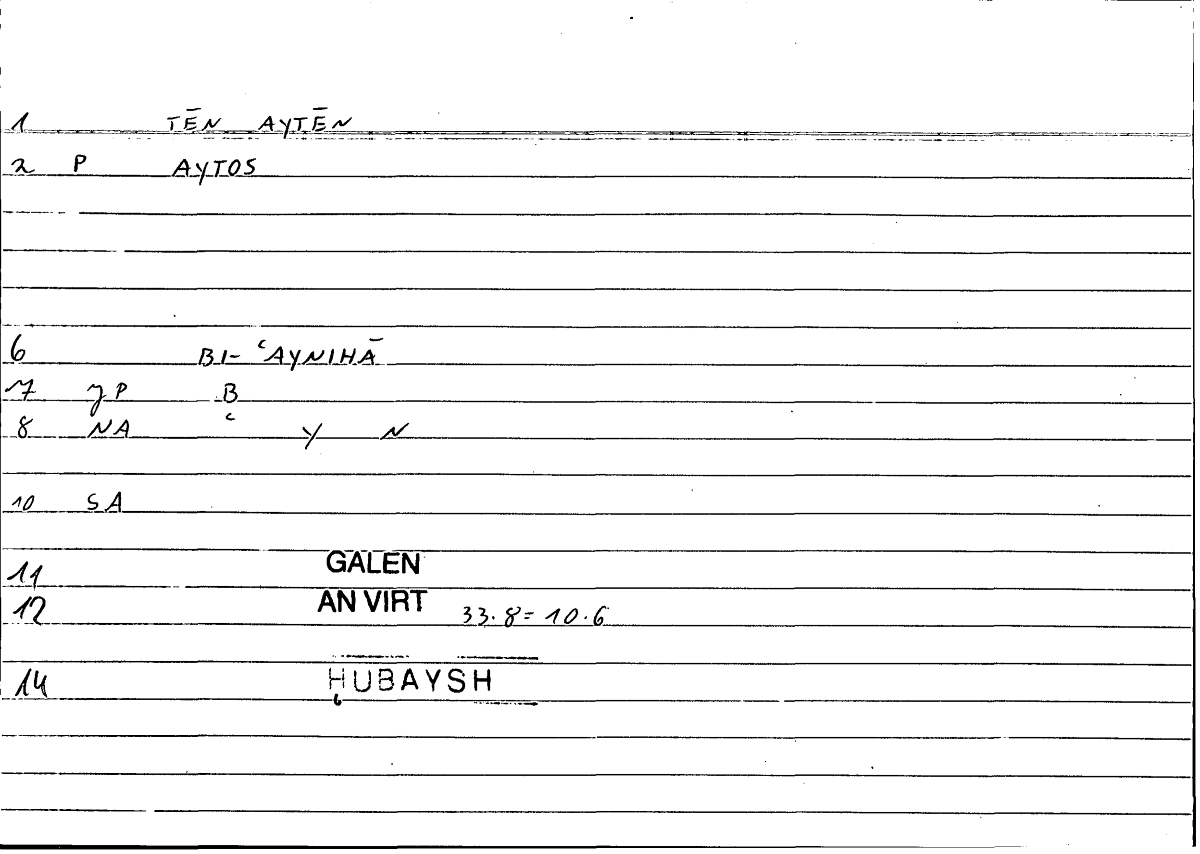 1 TĒN AYTĒN
2 P AYTOS
6 BI- ʿAYNIHĀ
7 JP B
8 NA ʿ Y N
10 SA
11 GALEN
12 AN VIRT 33.8=10.6
14 ḤUBAYSH